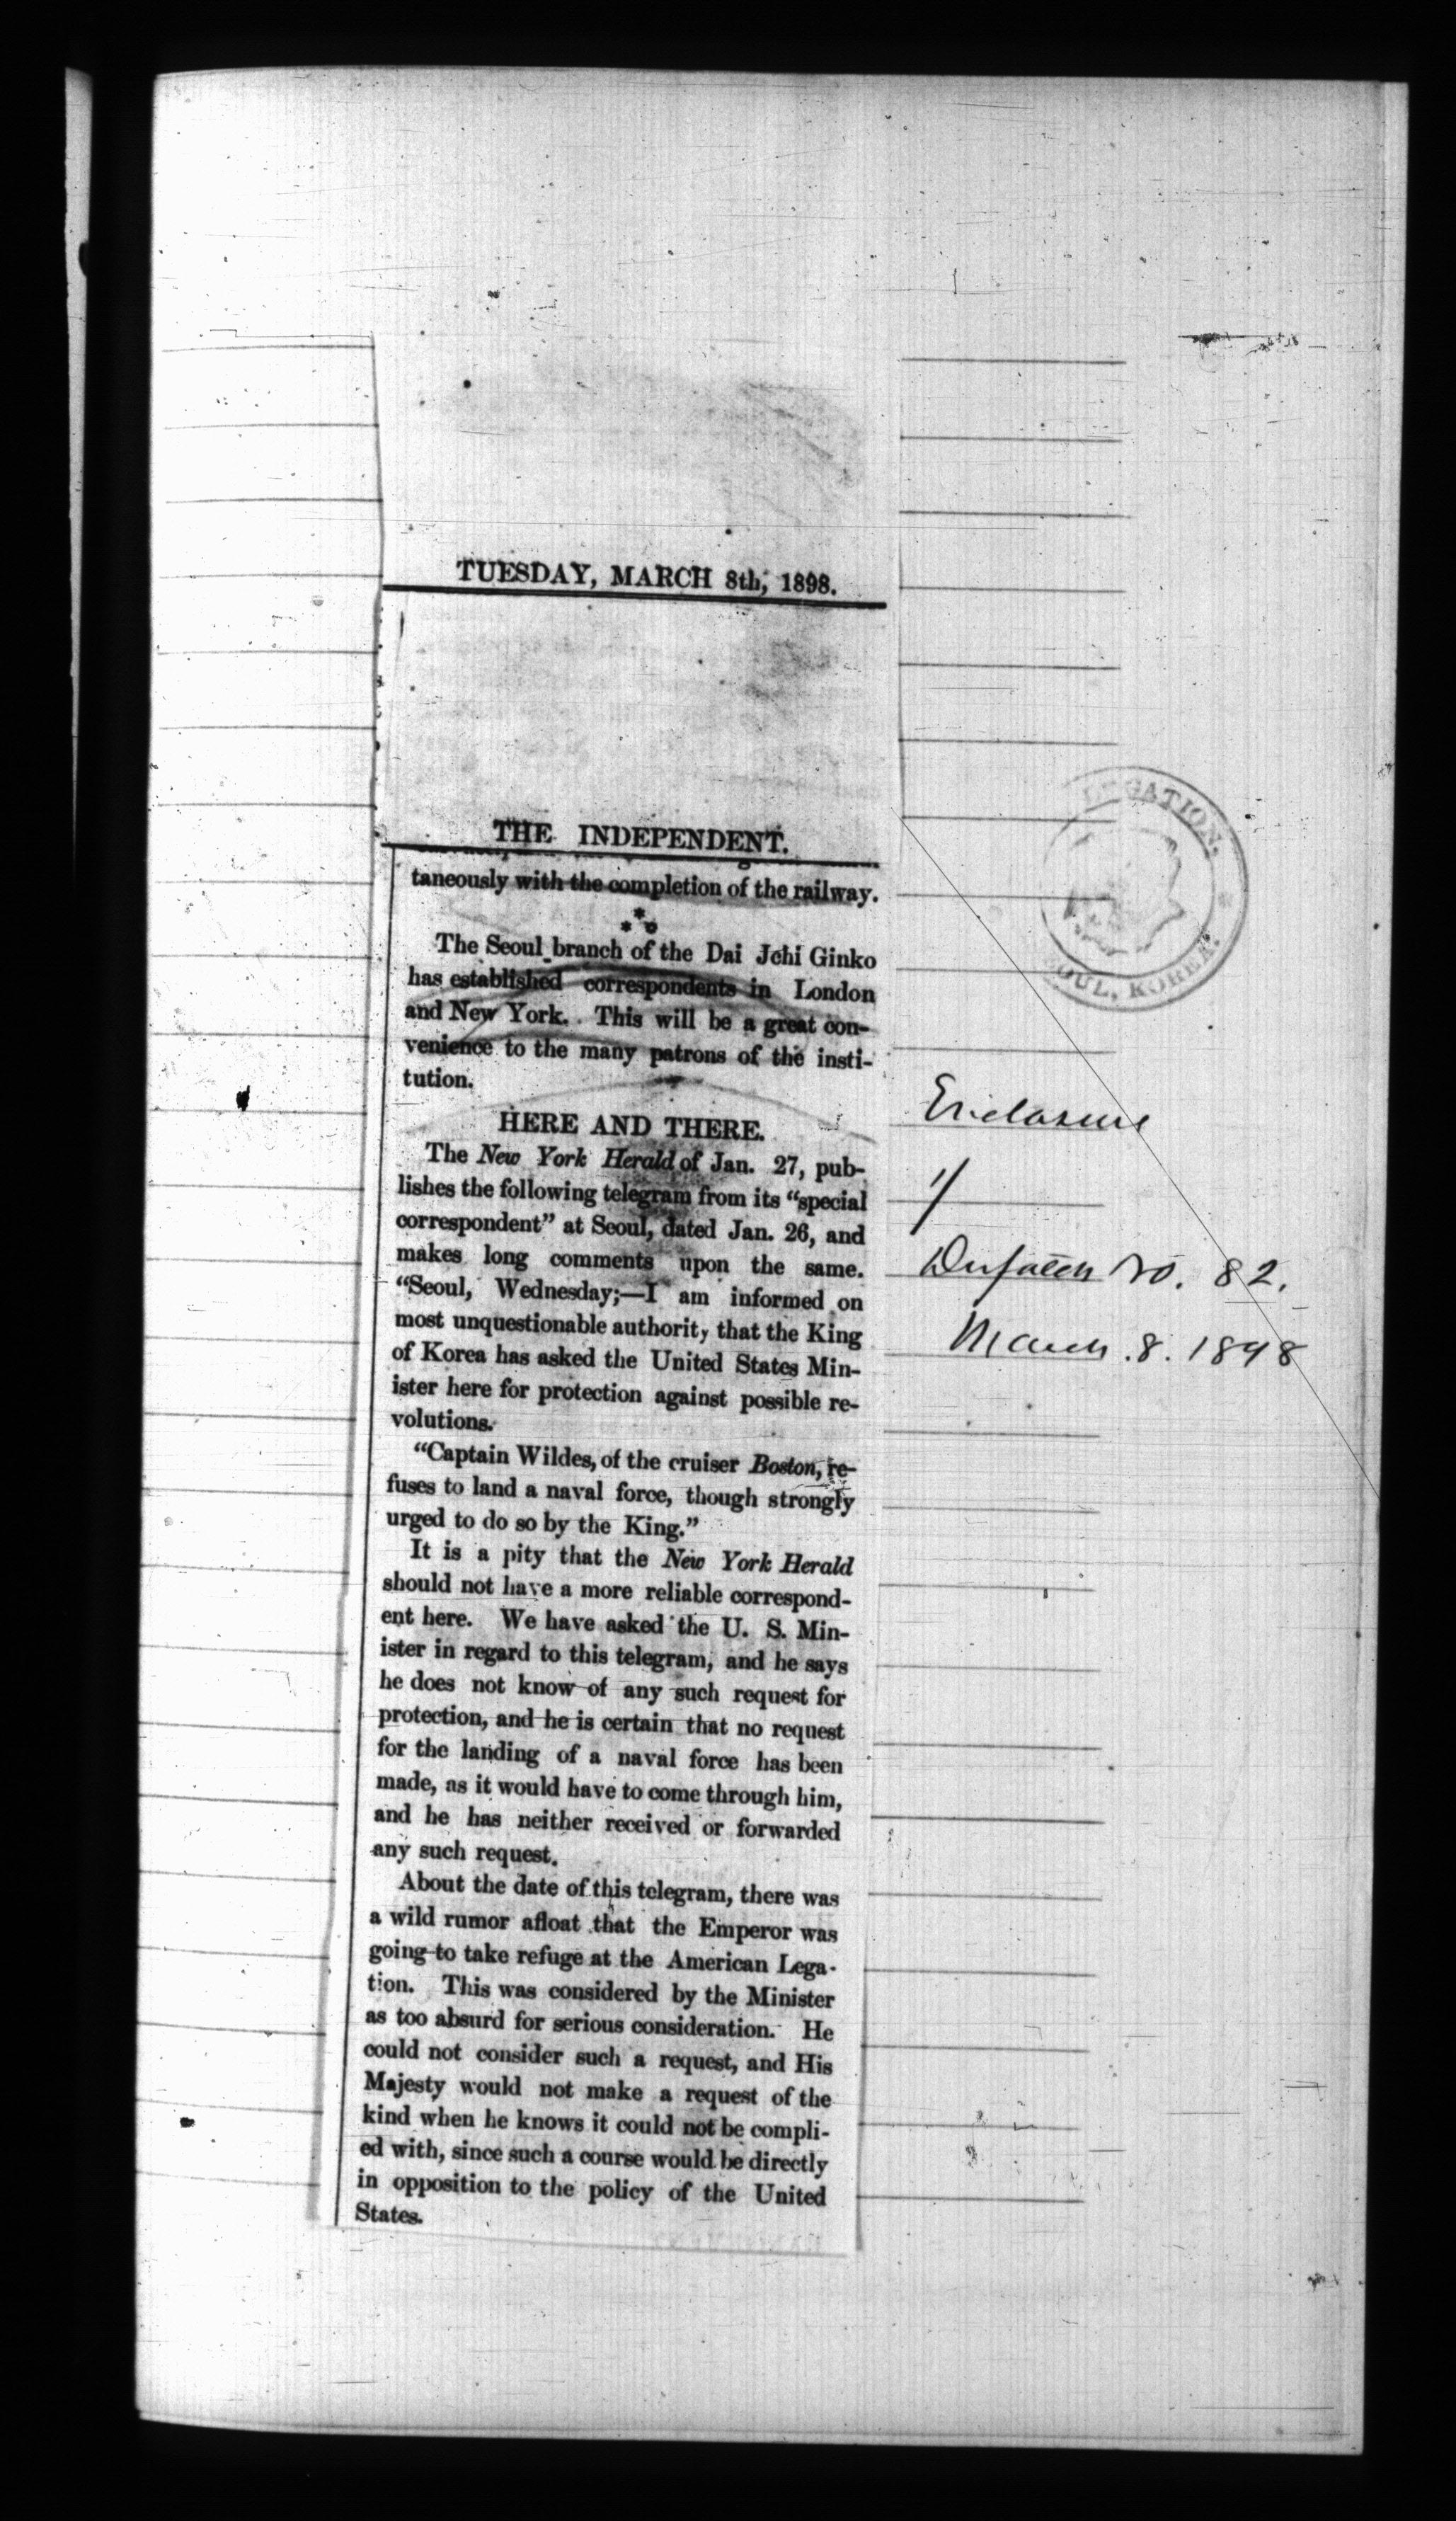 TUESDAY, MARCH 8th, 1898.
THE INDEPENDENT.
taneously with the completion of the railway.
***
The Seoul branch of the Dai Jchi Ginko
has established correspondents in London
and New York. This will be a great con-
venience to the many patrons of the insti-
tution.
HERE AND THERE.
The New York Herald of Jan. 27, pub-
lishes the following telegram from its “special
correspondent” at Seoul, dated Jan. 26, and
makes long comments upon the same.
“Seoul, Wednesday;—I am informed on
most unquestionable authority that the King
of Korea has asked the United States Min-
ister here for protection against possible re-
volutions.
“Captain Wildes, of the cruiser Boston, re-
fuses to land a naval force, though strongly
urged to do so by the King.”
It is a pity that the New York Herald
should not have a more reliable correspond-
ent here. We have asked the U. S. Min-
ister in regard to this telegram, and he says
he does not know of any such request for
protection, and he is certain that no request
for the landing of a naval force has been
made, as it would have to come through him,
and he has neither received or forwarded
any such request.
About the date of this telegram, there was
a wild rumor afloat that the Emperor was
going to take refuge at the American Lega-
tion. This was considered by the Minister
as too absurd for serious consideration. He
could not consider such a request, and His
Majesty would not make a request of the
kind when he knows it could not be compli-
ed with, since such a course would be directly
in opposition to the policy of the United
States.
LEGATION,
OUL, KOREA.
Enclosure
1/
Dispatch No. 82.
March. 8. 1898